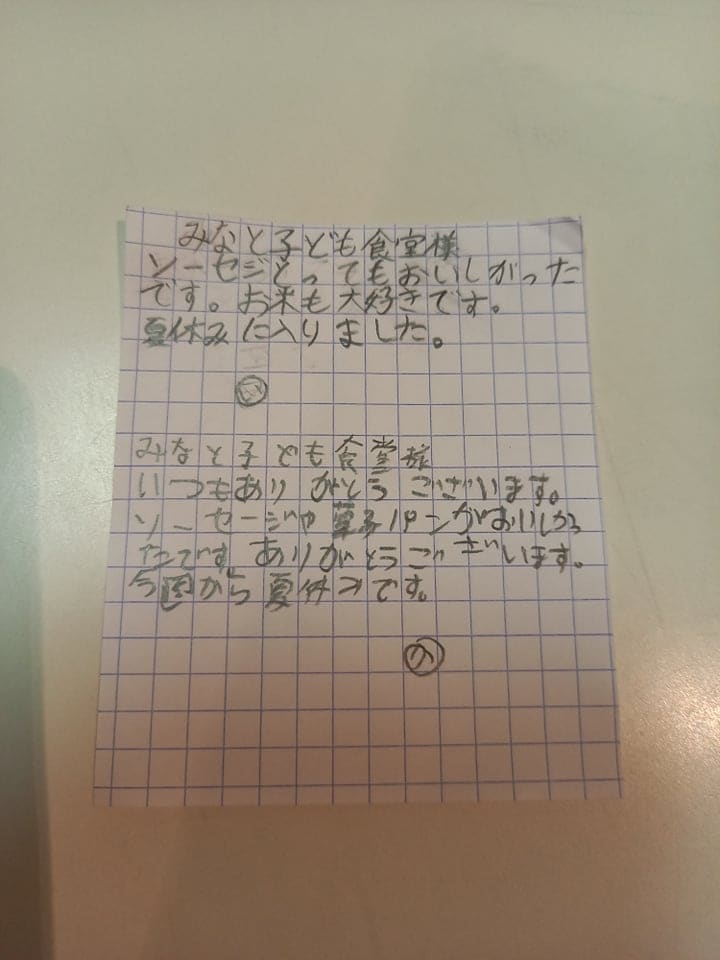 みなと子ども食堂様
ソーセジとってもおいしかった
です。お米も大好きです。
夏休みに入りました。
みなと子ども食堂様
いつもありがとうございます。
ソーセージや菓子パンがおいしかっ
たです。ありがとうございます。
今週から夏休みです。